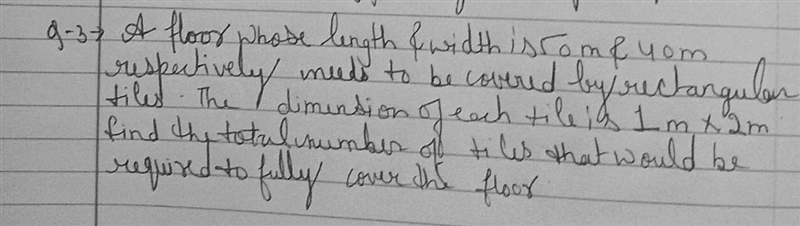 q-3→ A floor whose length & width is 50m & 40m
respectively needs to be covered by rectangular
tiles. The dimension of each tile is 1m x 2m
find the total number of tiles that would be
required to fully cover the floor